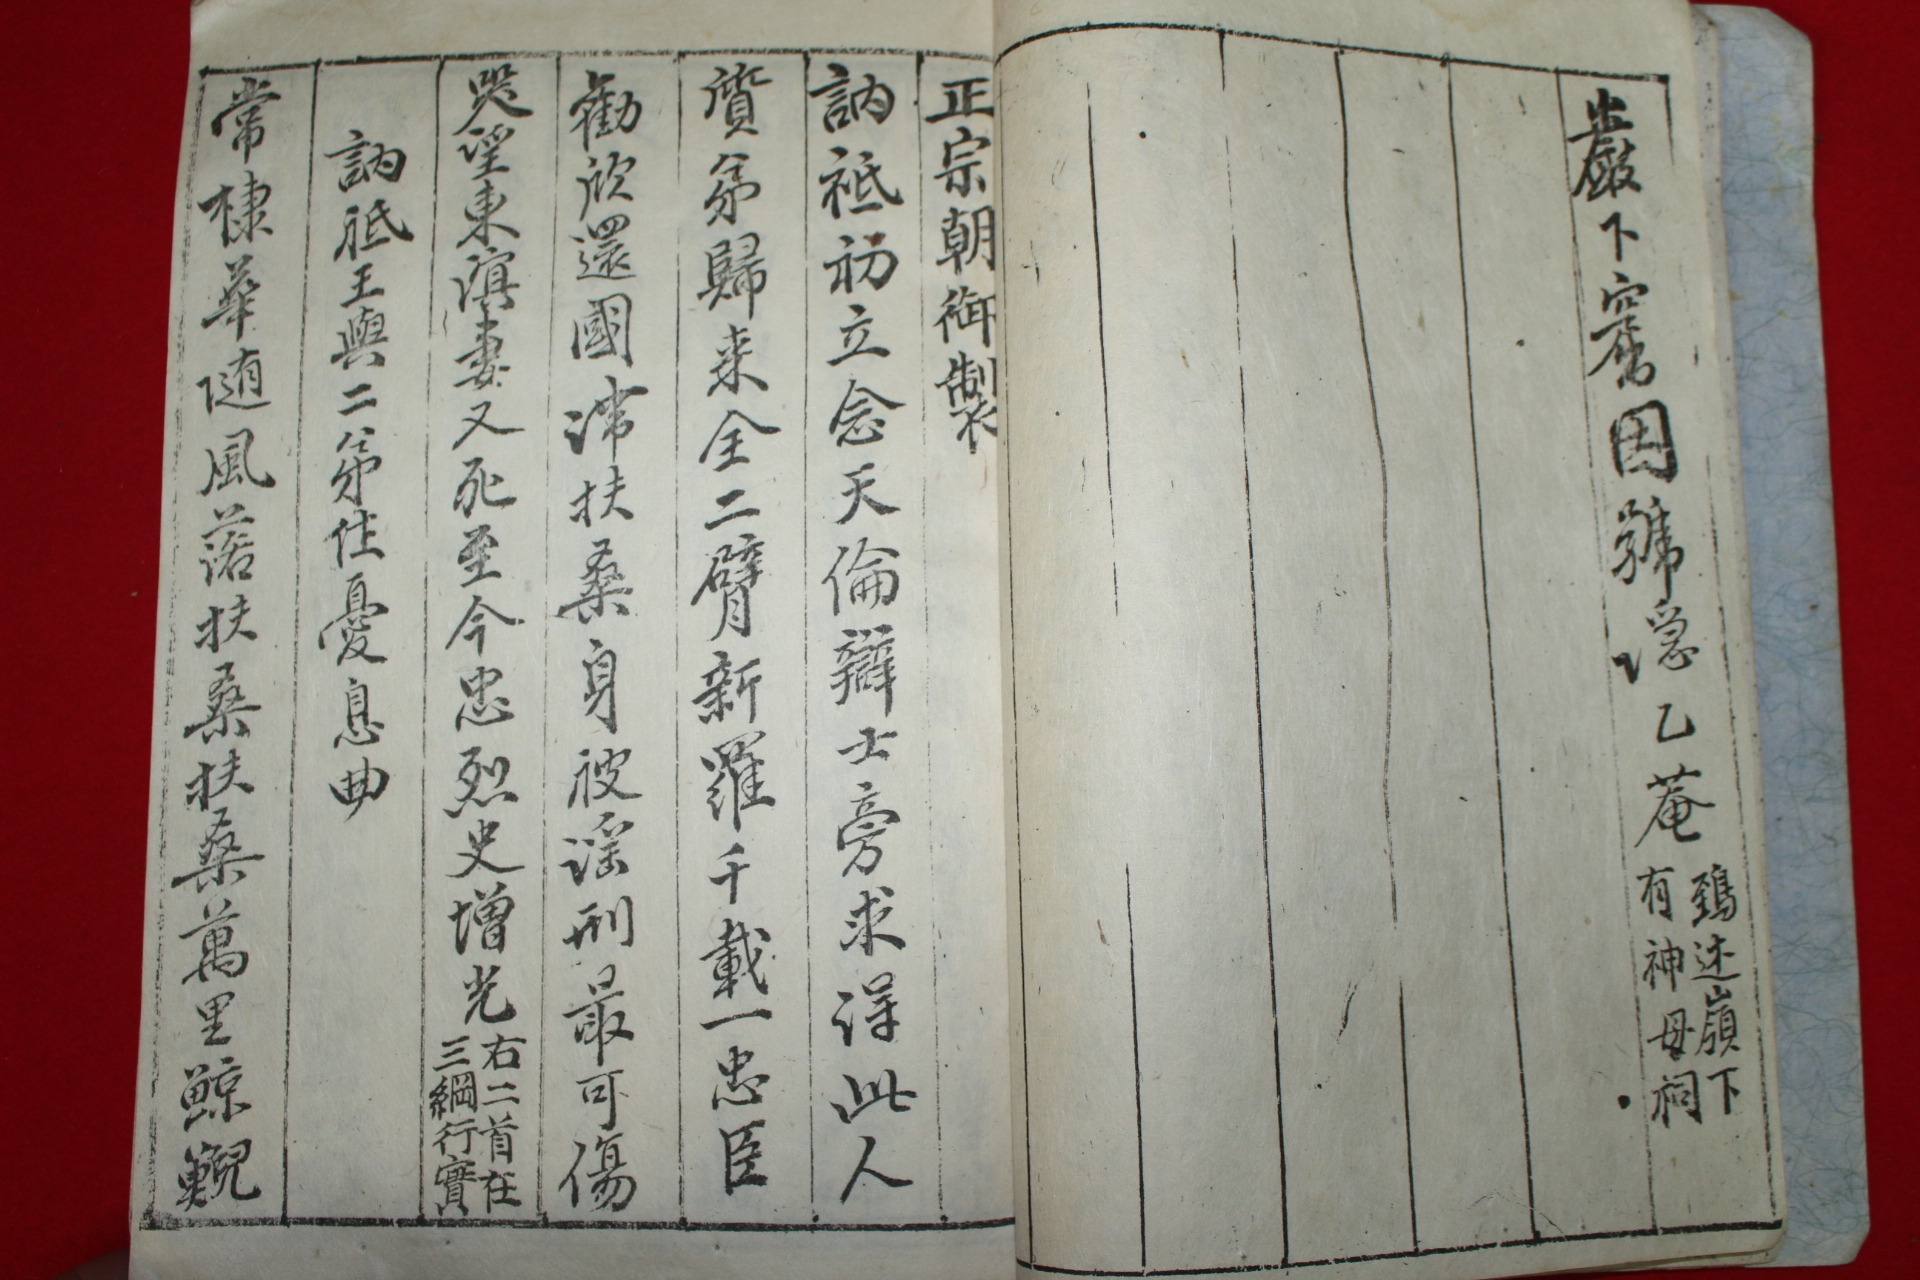 巖下窟因號隱乙菴 鵄述嶺下
有神母祠
正宗朝御製
訥祗初立念天倫辯士旁求得此人
質弟歸来全二臂新羅千載一忠臣
勸欣還國滯扶桑身被淫刑最可傷
哭望東溟妻又死至今忠烈史增光 右二首在
三綱行實
訥祗王與二弟作憂息曲
常棣華随風落扶桑扶桑萬里鯨鯢